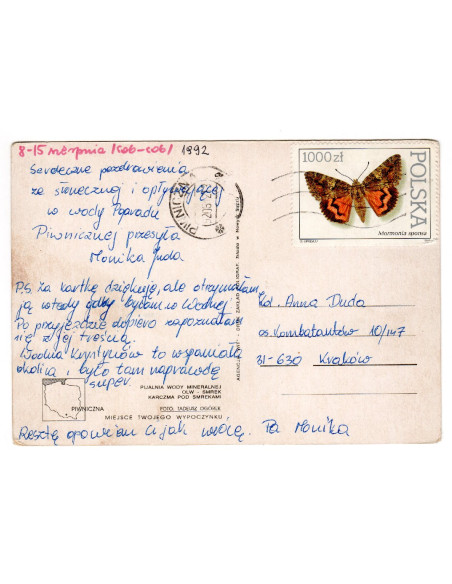 8-15 sierpnia /sob-sob/ 1992
Serdeczne pozdrowienia
ze słonecznej i opływającej
w wody Popradu
Piwnicznej przesyła
Monika Juda
P.S. Za kartkę dziękuję, ale otrzymałam
ją wtedy gdy byłam w
Po przyjeździe dopiero zapoznałam
się z jej treścią.
to wspaniała
okolica i było tam naprawdę
super.
PIJALNIA WODY MINERALNEJ
OLW - SMREK
KARCZMA POD SMREKAMI
PIWNICZNA
FOTO: TADEUSZ OGÓREK
MIEJSCE TWOJEGO WYPOCZYNKU
Resztę opowiem Ci jak wrócę. Pa Monika
PIWNICZNA
1000 zł
POLSKA
Mormonia sponsa
Kol. Anna Duda
os. Kombatantów 10/147
31-630 Kraków